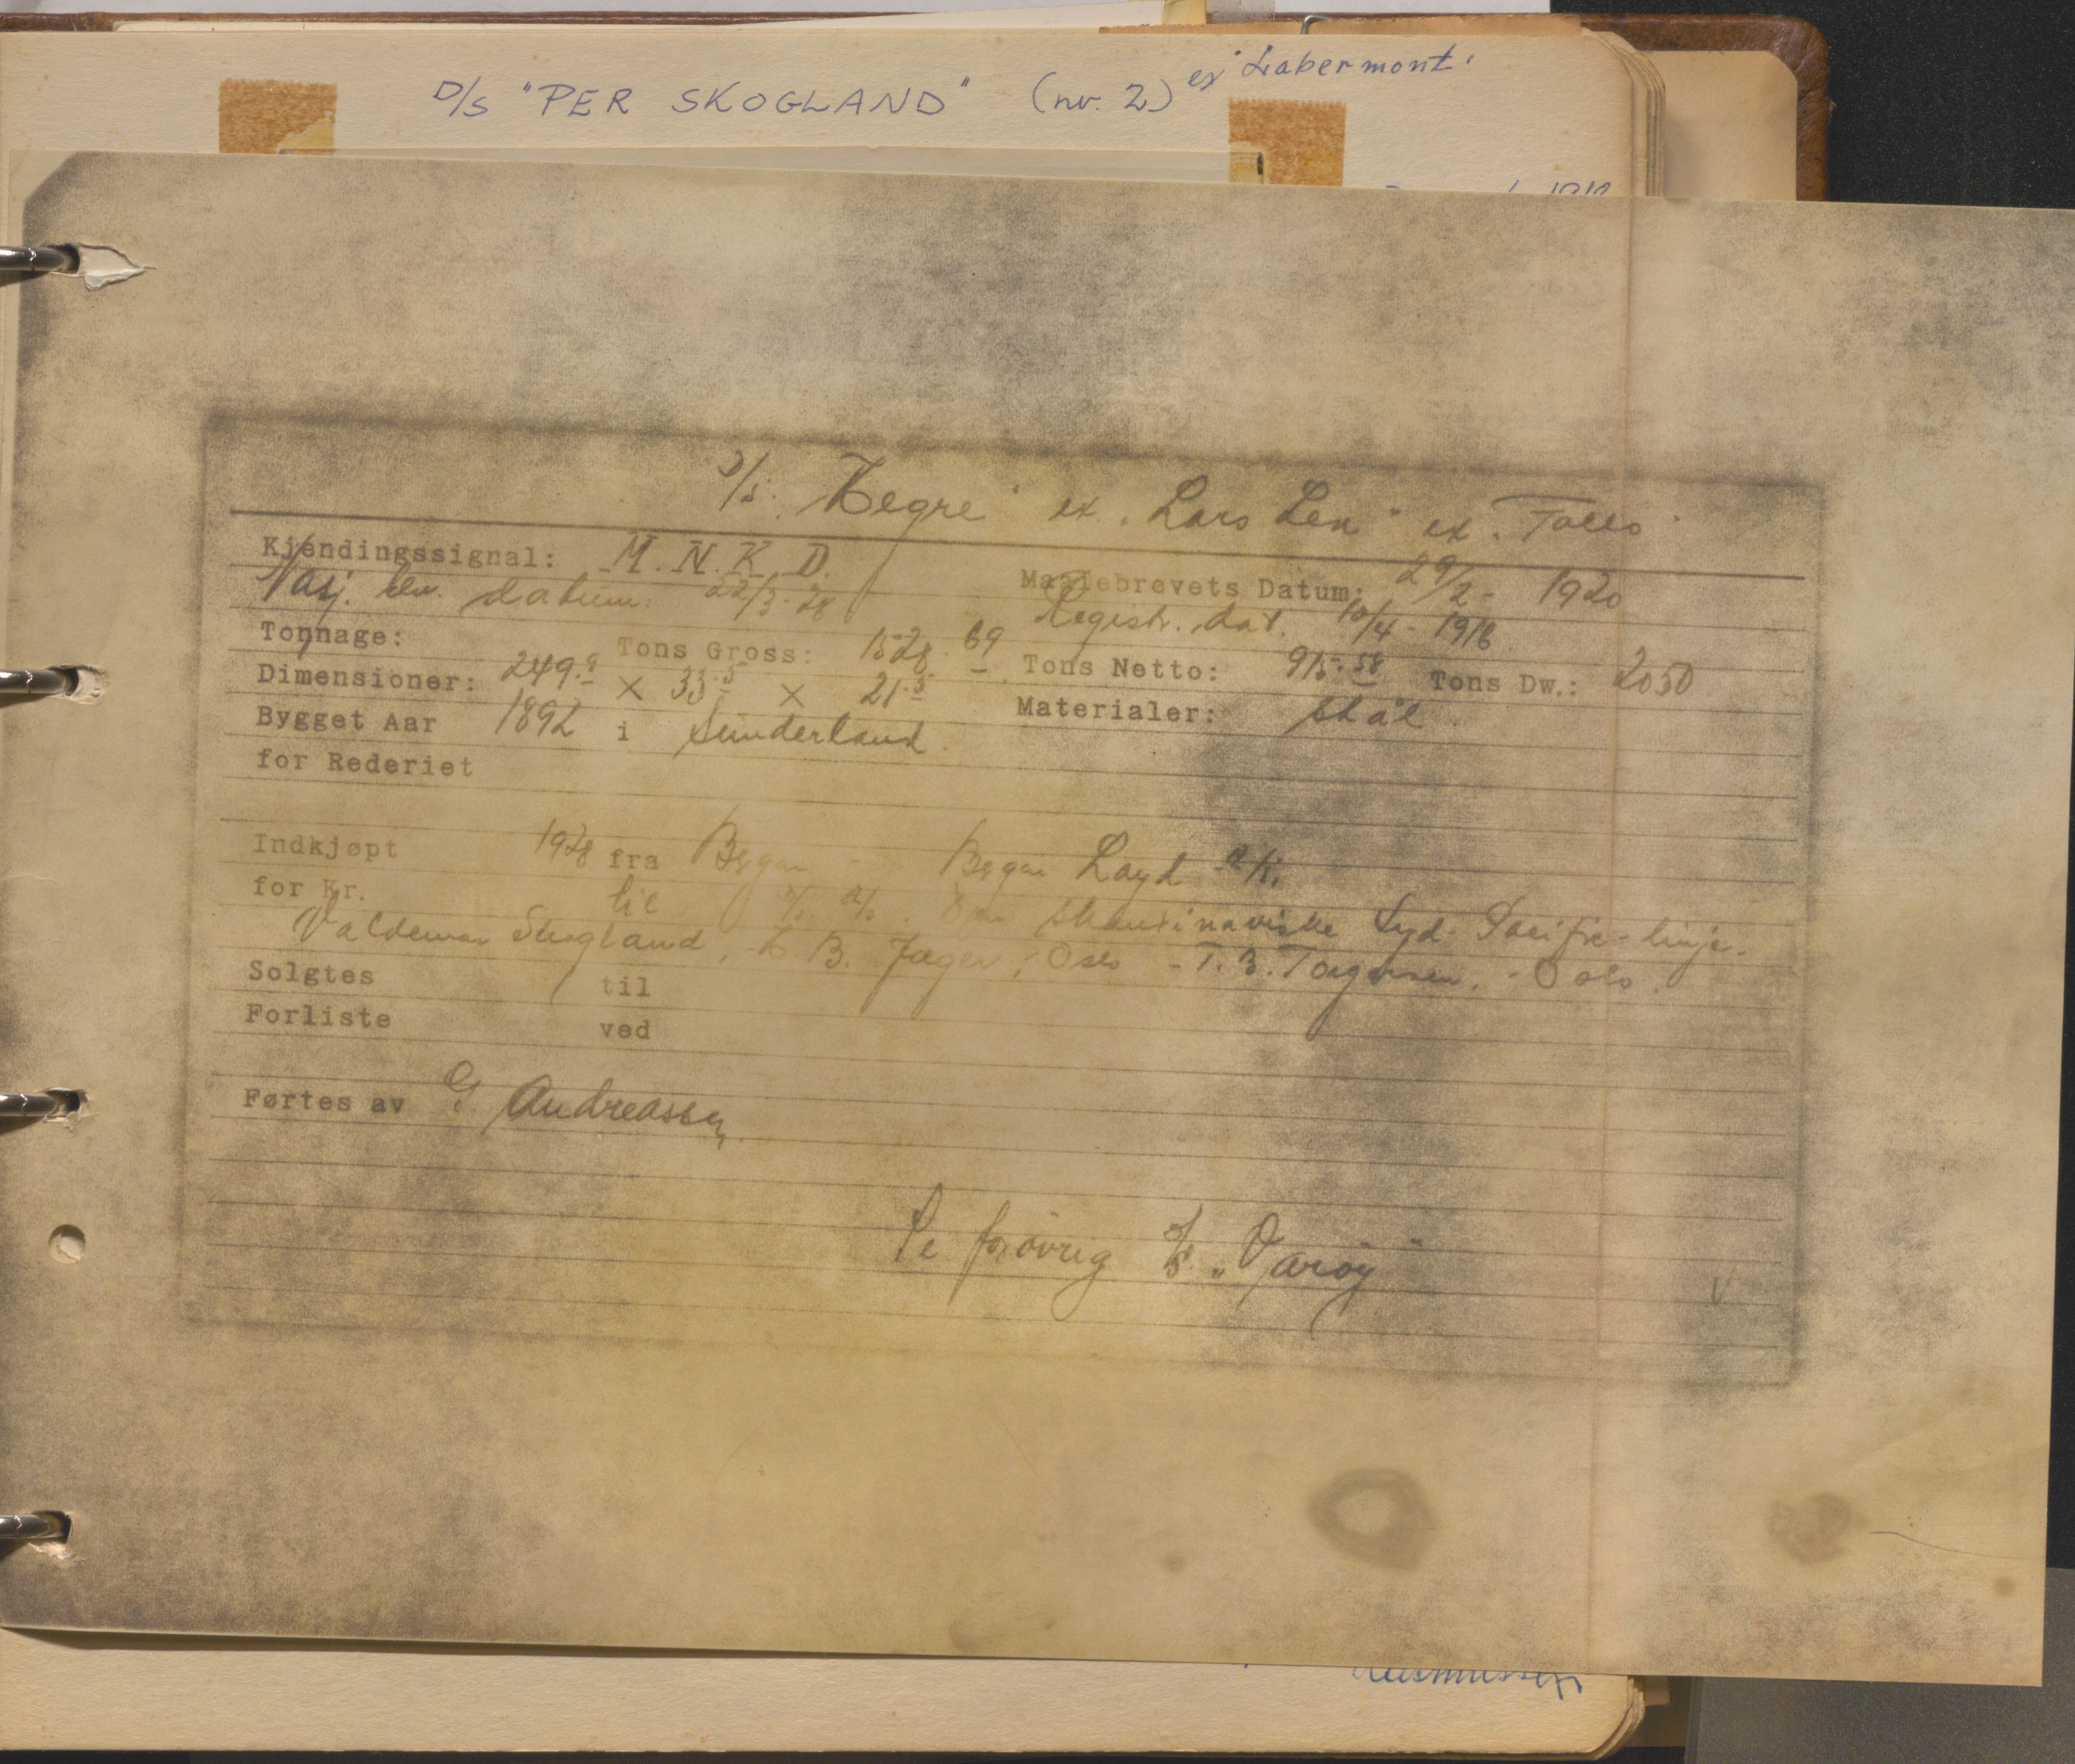 D/S "PER SKOGLAND" (nr. 2) ex "Labermont"
D/S. "Hegre" ex. "Lars Lea" ex. "Follo"
Kjendingssignal: M. N. K. D.
Maalebrevets Datum: 29/2 - 1920
Nasj. bev. datum: 22/3 - 28
Registr. dat. 10/4 - 1918
Tonnage: Tons Gross: 1528.69 Tons Netto: 915.58 Tons Dw.: 2050
Dimensioner: 249.9 × 33.5 × 21.5 Materialer: Stål.
Bygget Aar 1892 i Sunderland.
for Rederiet
Indkjøpt 1928 fra Bergen - Bergen Loyd A/S.
for Kr. til D/S A/S. Den Skandinaviske Syd-Pacific-linje.
Valdemar Skogland, - B. Jæger, Oslo - T. B. Torgersen, - Oslo.
Solgtes til
Forliste ved
Førtes av G. Andreassen.
Se forøvrig D/S. "Varøy"
Rasmussen